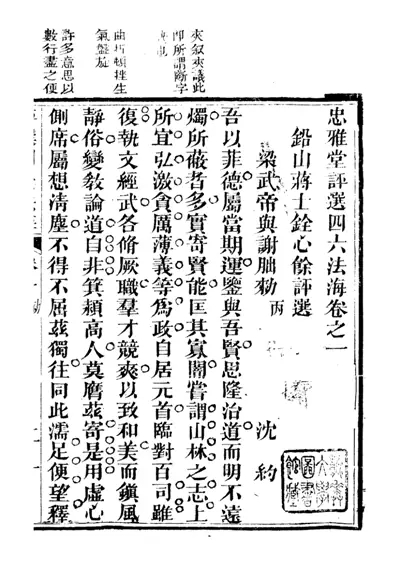 忠雅堂評選四六法海卷之一
鉛山蔣士銓心餘評選
梁武帝與謝朏勑 丙 沈約
吾以菲德屬當期運鑒與吾賢思隆治道而明不遠
夾叙夾議此
卽所謂斷字
燭所蔽者多實寄賢能匡其寡闇嘗謂山林之志上
所宜弘激貪厲薄義等爲政自居元首臨對百司雖
曲折頓挫生
氣盤旋
復執文經武各脩厥職羣才競爽以致和美而鎭風
靜俗變敎論道自非箕潁高人莫膺茲寄是用虛心
許多意思以
數行盡之便
側席屬想清塵不得不屈茲獨往同此濡足便望釋
大學
圖書
館藏